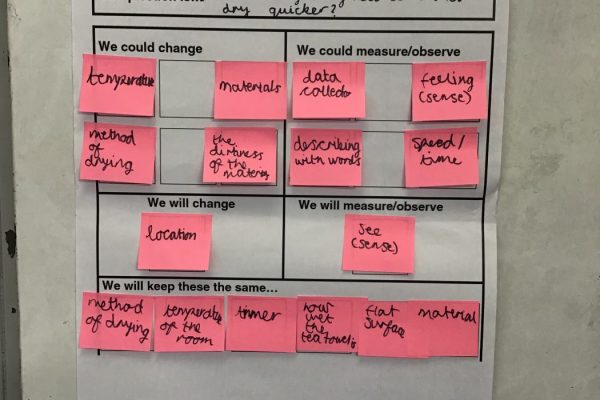 dry quicker?
We could change
We could measure/observe
temperature
materials
data
collector
feeling
(sense)
method
of
drying
the
dirtiness
of the
material
describing
with words
speed/
time
We will change
We will measure/observe
location
see
(sense)
We will keep these the same...
method
of drying
temperature
of the
room
timer
how
wet
the
tea towel is
flat
surface
material